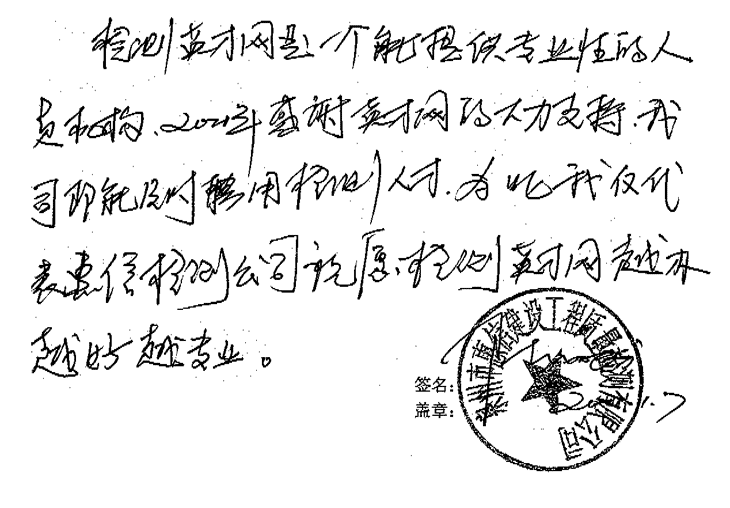 检测英才网是一个能提供专业性的人
员机构、2021年感谢英才网的大力支持、我
司即能及时聘用检测人才、为此我仅代
表惠信检测公司祝愿、检测英才网越办
越好越专业。
签名:
盖章:
州市惠信建设工程质量检测有限公司
1.7